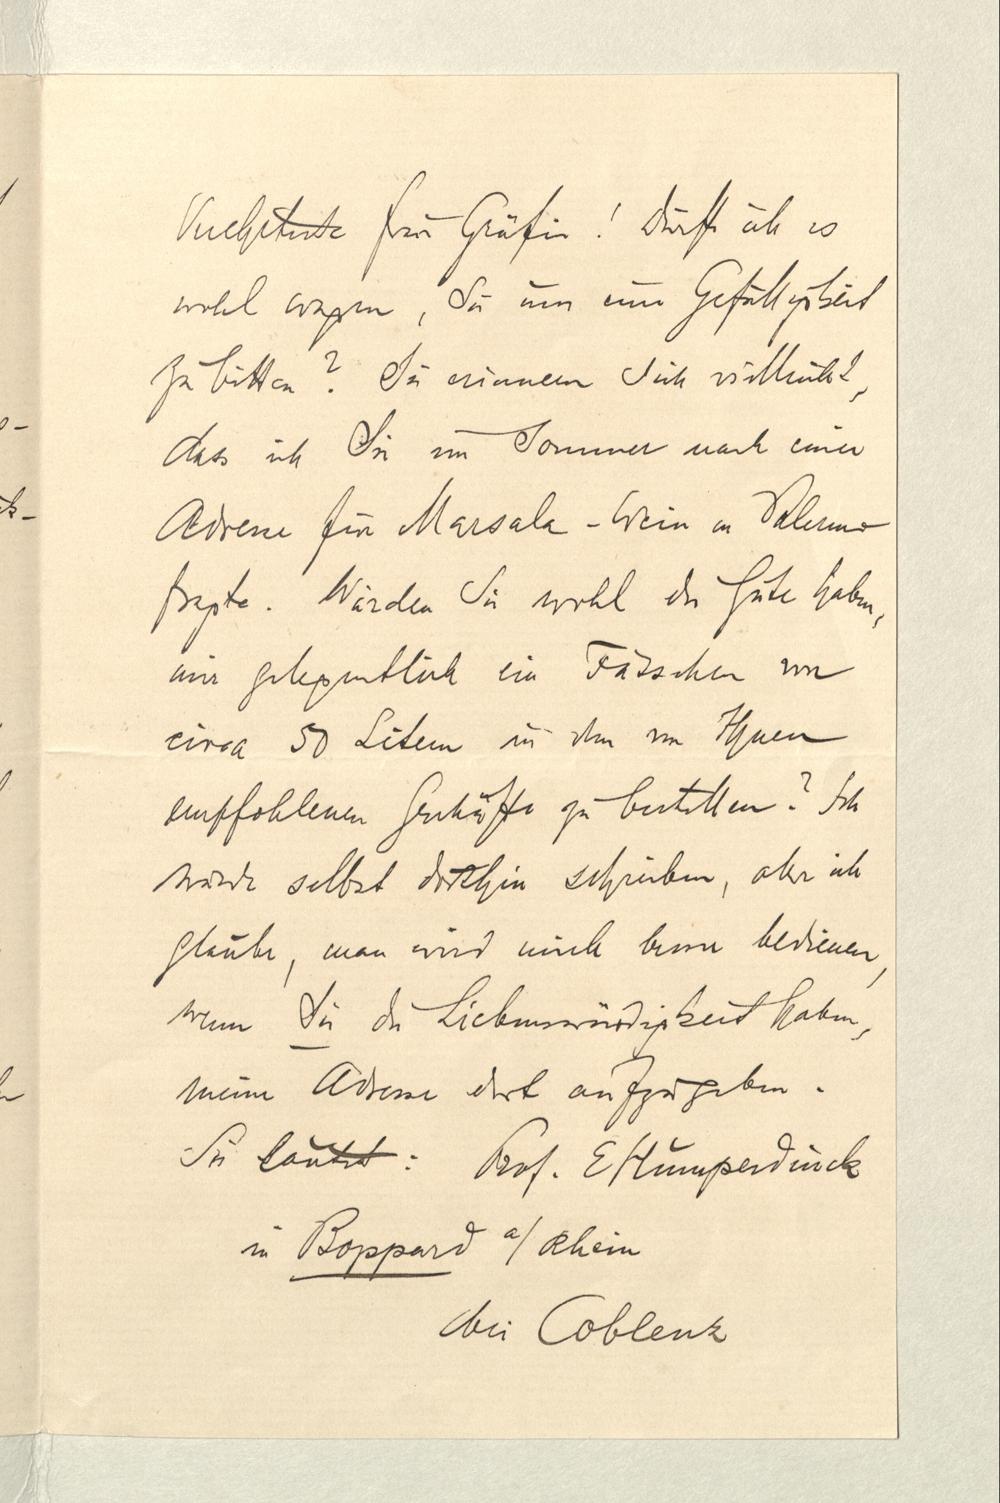 Verehrteste Frau Gräfin! Dürfte ich es
wohl wagen, Sie um eine Gefälligkeit
zu bitten? Sie erinnern Sich vielleicht,
dass ich Sie im Sommer nach einer
Adresse für Marsala-Wein in Palermo
fragte. Würden Sie wohl die Güte haben,
mir gelegentlich ein Fässchen von
circa 50 Litern in dem von Ihnen
empfohlenen Geschäfte zu bestellen? Ich
würde selbst dorthin schreiben, aber ich
glaube, man wird mich besser bedienen,
wenn Sie die Liebenswürdigkeit haben,
meine Adresse dort aufzugeben.
Sie lautet: Prof. E Humperdinck
in Boppard a/ Rhein
bei Coblenz